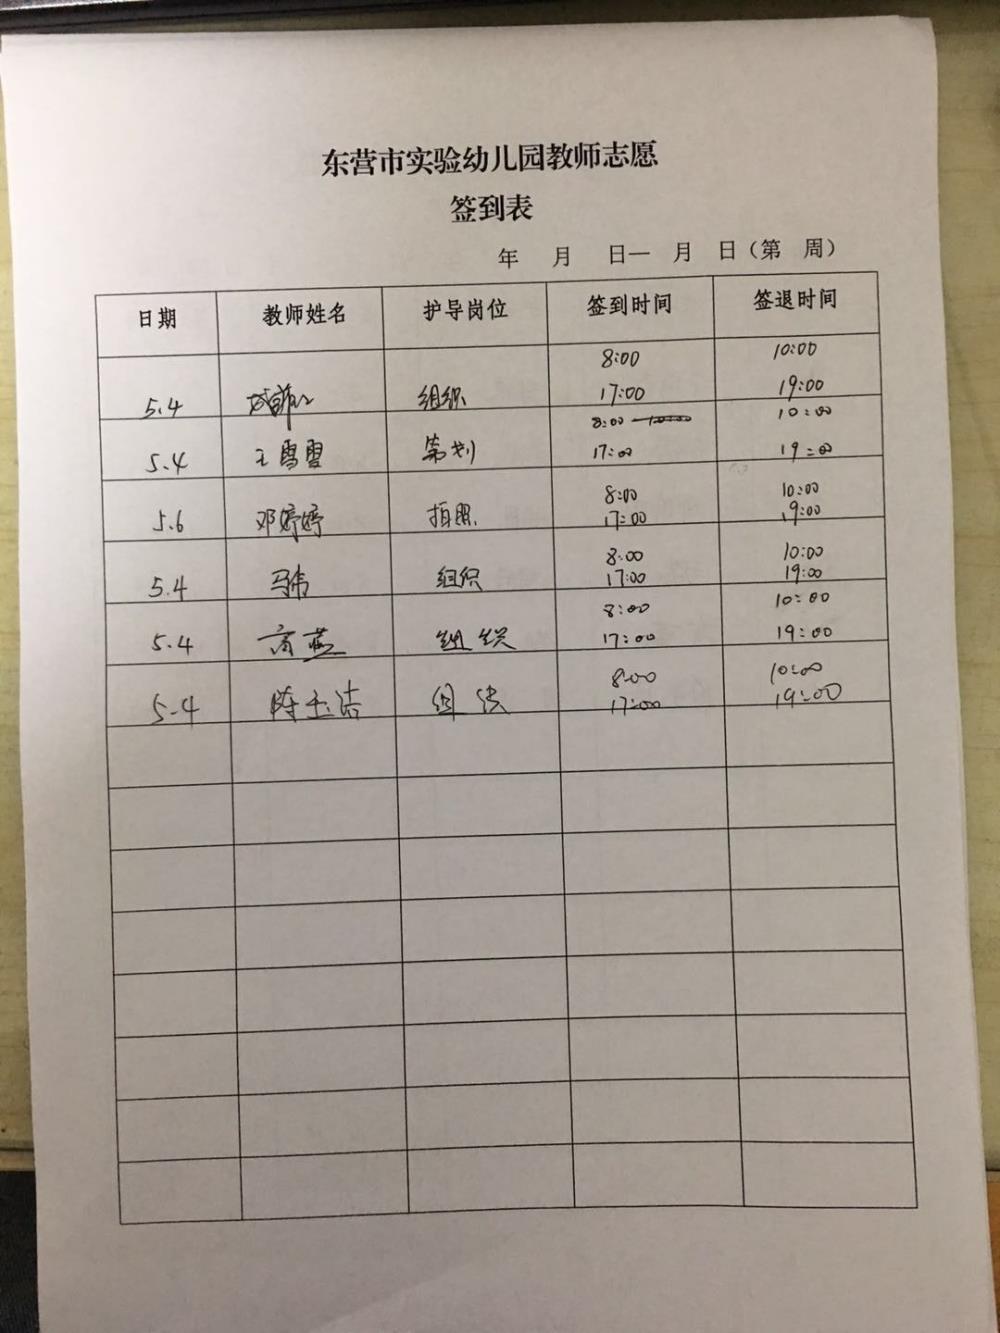 东营市实验幼儿园教师志愿
签到表
年 月 日一 月 日（第 周）
日期 教师姓名 护导岗位 签到时间 签退时间
8:00 10:00
5.4 组织 17:00 19:00
8:00 10:00
5.4 王雪雪 策划 17:00 19:00
8:00 10:00
5.6 邓婷婷 拍照 17:00 19:00
8:00 10:00
5.4 马伟 组织 17:00 19:00
8:00 10:00
5.4 高燕 组织 17:00 19:00
8:00 10:00
5.4 陈玉洁 组织 17:00 19:00